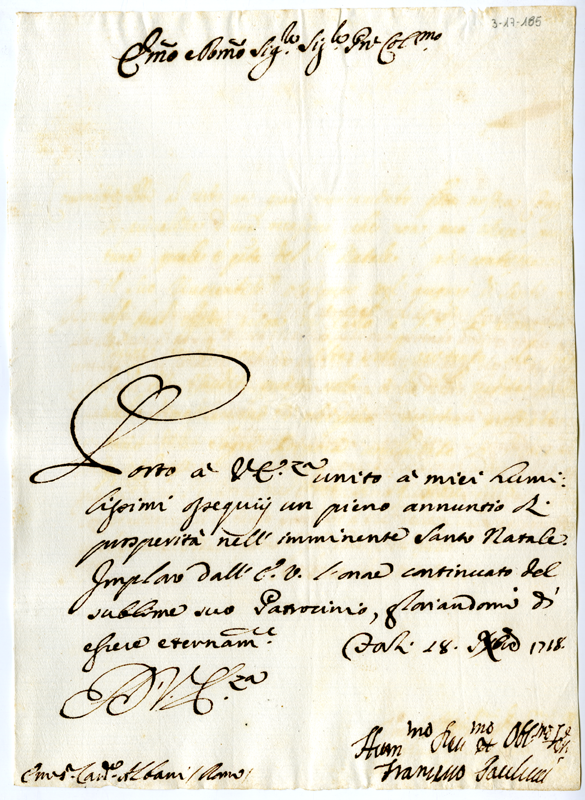 3-17-185
Em̃o e Rm̃o Sig.re Sig.re Pñe Col.mo
Porto à V.E.za unito à miei humi-
lissimi ossequij un pieno annuntio di
prosperità nell' imminente Santo Natale.
Imploro dall' E.V. l'onore continuato del
sublime suo Patrocinio, gloriandomi d'
essere eternam.te 18. Xbre 1718.
D.V.E.za
Hum.mo Dev.mo et Obl.mo
Em.o Card.e Albani / Roma / Francesco